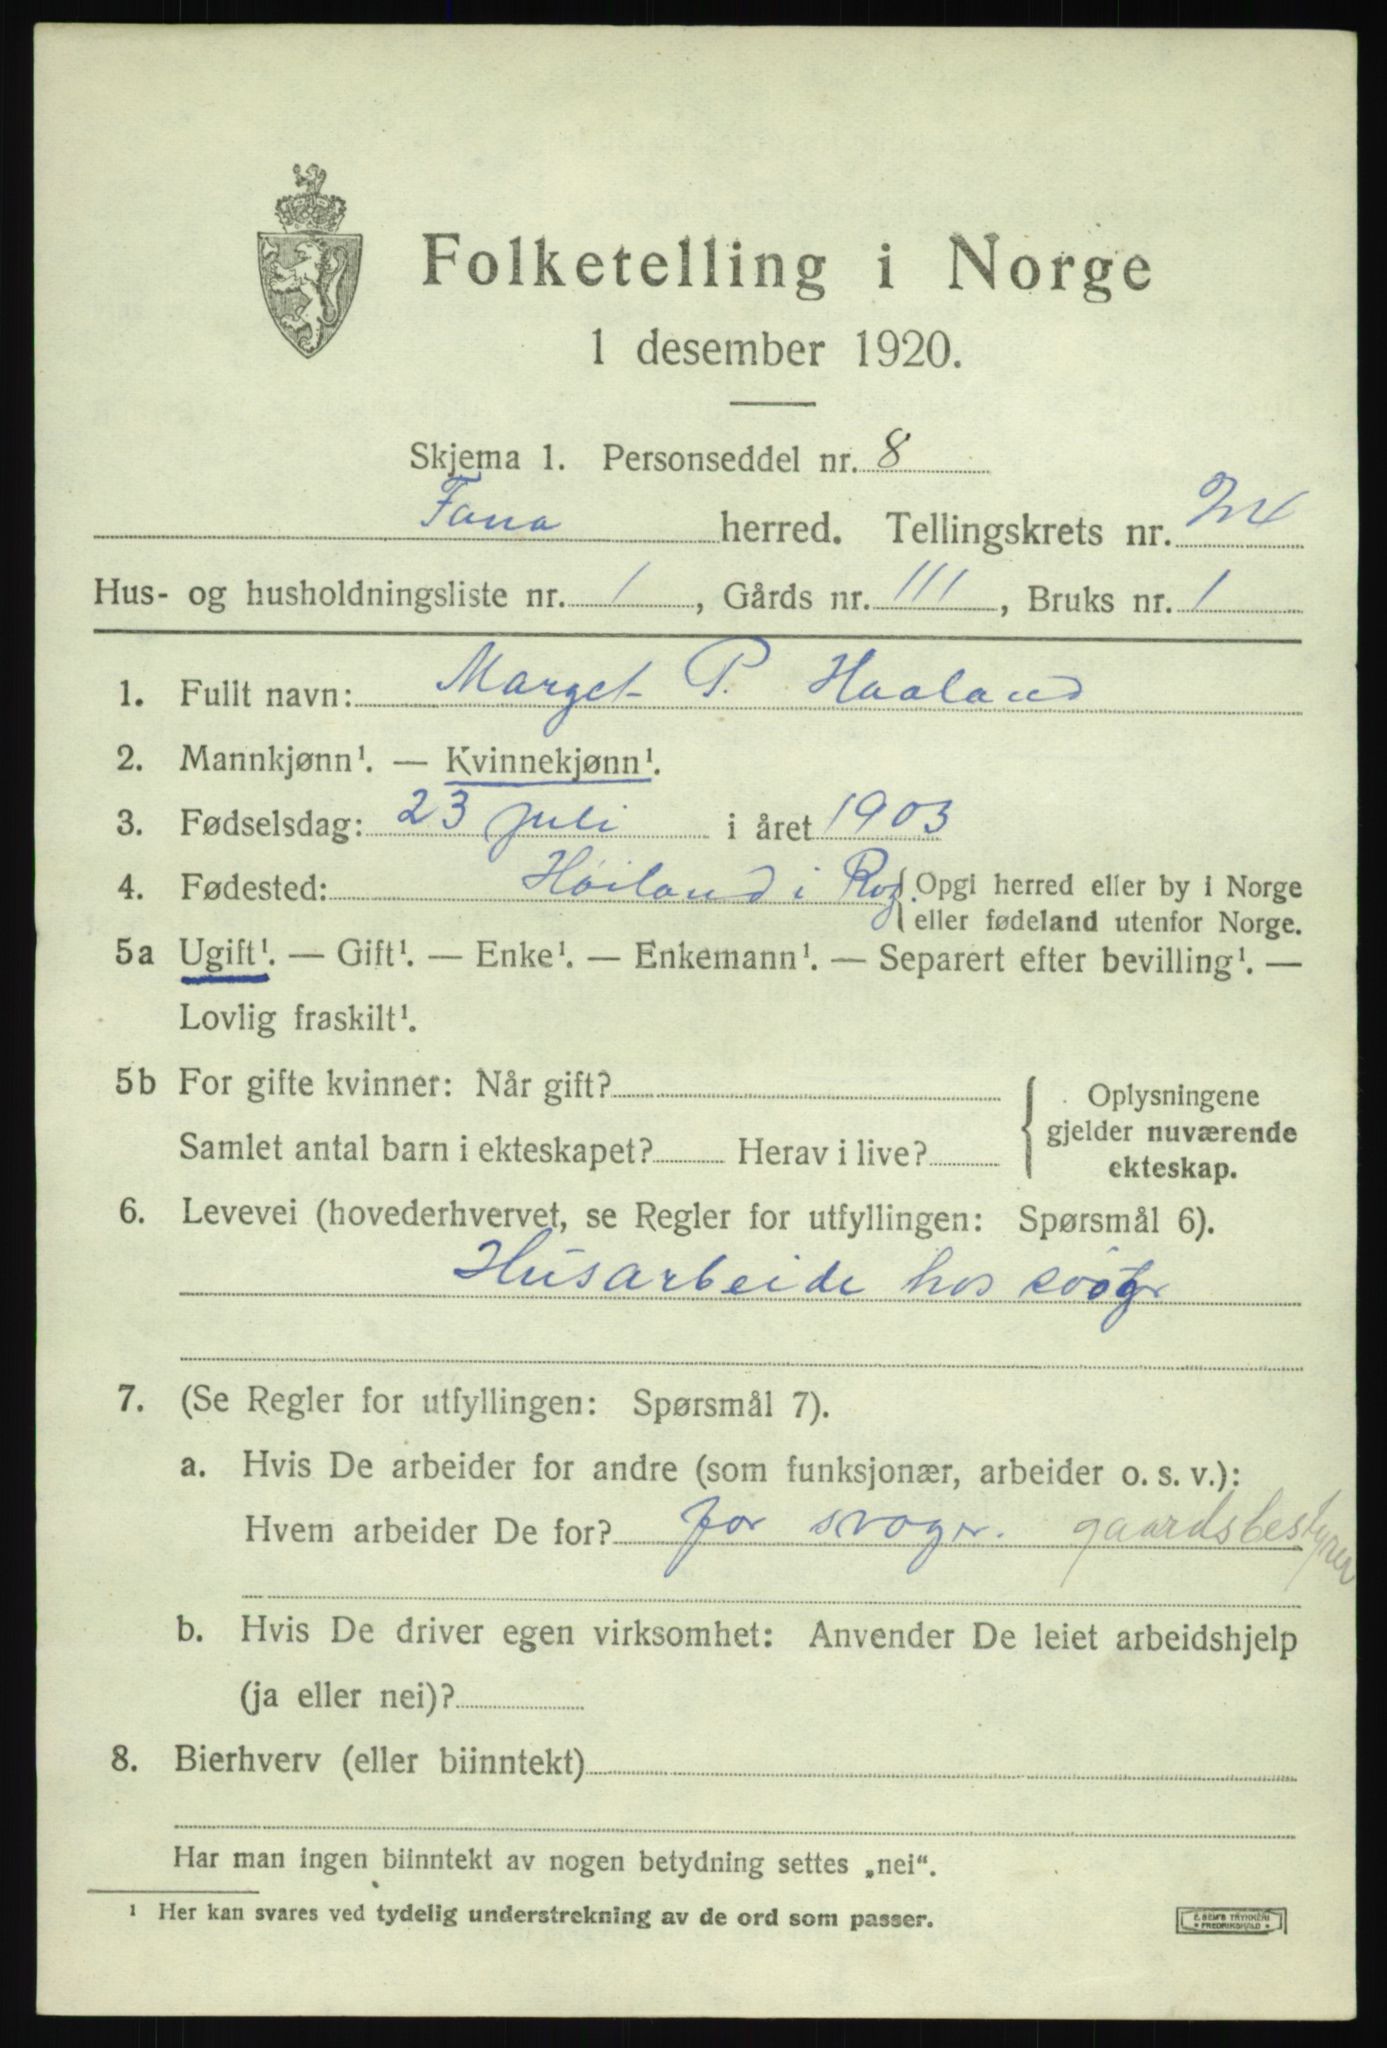 Folketelling i Norge
1 desember 1920.
Skjema 1. Personseddel nr. 8
Fana herred. Tellingskrets nr. 24
Hus- og husholdningsliste nr. 1, Gårds nr. 111, Bruks nr. 1
1. Fullt navn: Marget P. Haaland
2. Mannkjønn¹. — Kvinnekjønn¹.
3. Fødselsdag: 23 juli i året 1903
4. Fødested: Høiland i Rog. { Opgi herred eller by i Norge
eller fødeland utenfor Norge.
5a Ugift¹. — Gift¹. — Enke¹. — Enkemann¹. — Separert efter bevilling¹. —
Lovlig fraskilt¹.
5b For gifte kvinner: Når gift? { Oplysningene
gjelder nuværende
Samlet antal barn i ekteskapet? Herav i live?
ekteskap.
6. Levevei (hovederhvervet, se Regler for utfyllingen: Spørsmål 6).
Husarbeide hos
7. (Se Regler for utfyllingen: Spørsmål 7).
a. Hvis De arbeider for andre (som funksjonær, arbeider o. s. v.):
Hvem arbeider De for? for svoger. gaardsbestyrer
b. Hvis De driver egen virksomhet: Anvender De leiet arbeidshjelp
(ja eller nei)?
8. Bierhverv (eller biinntekt)
Har man ingen biinntekt av nogen betydning settes „nei“.
¹ Her kan svares ved tydelig understrekning av de ord som passer.
E. SEM'S TRYKKERI
FREDRIKSHALD